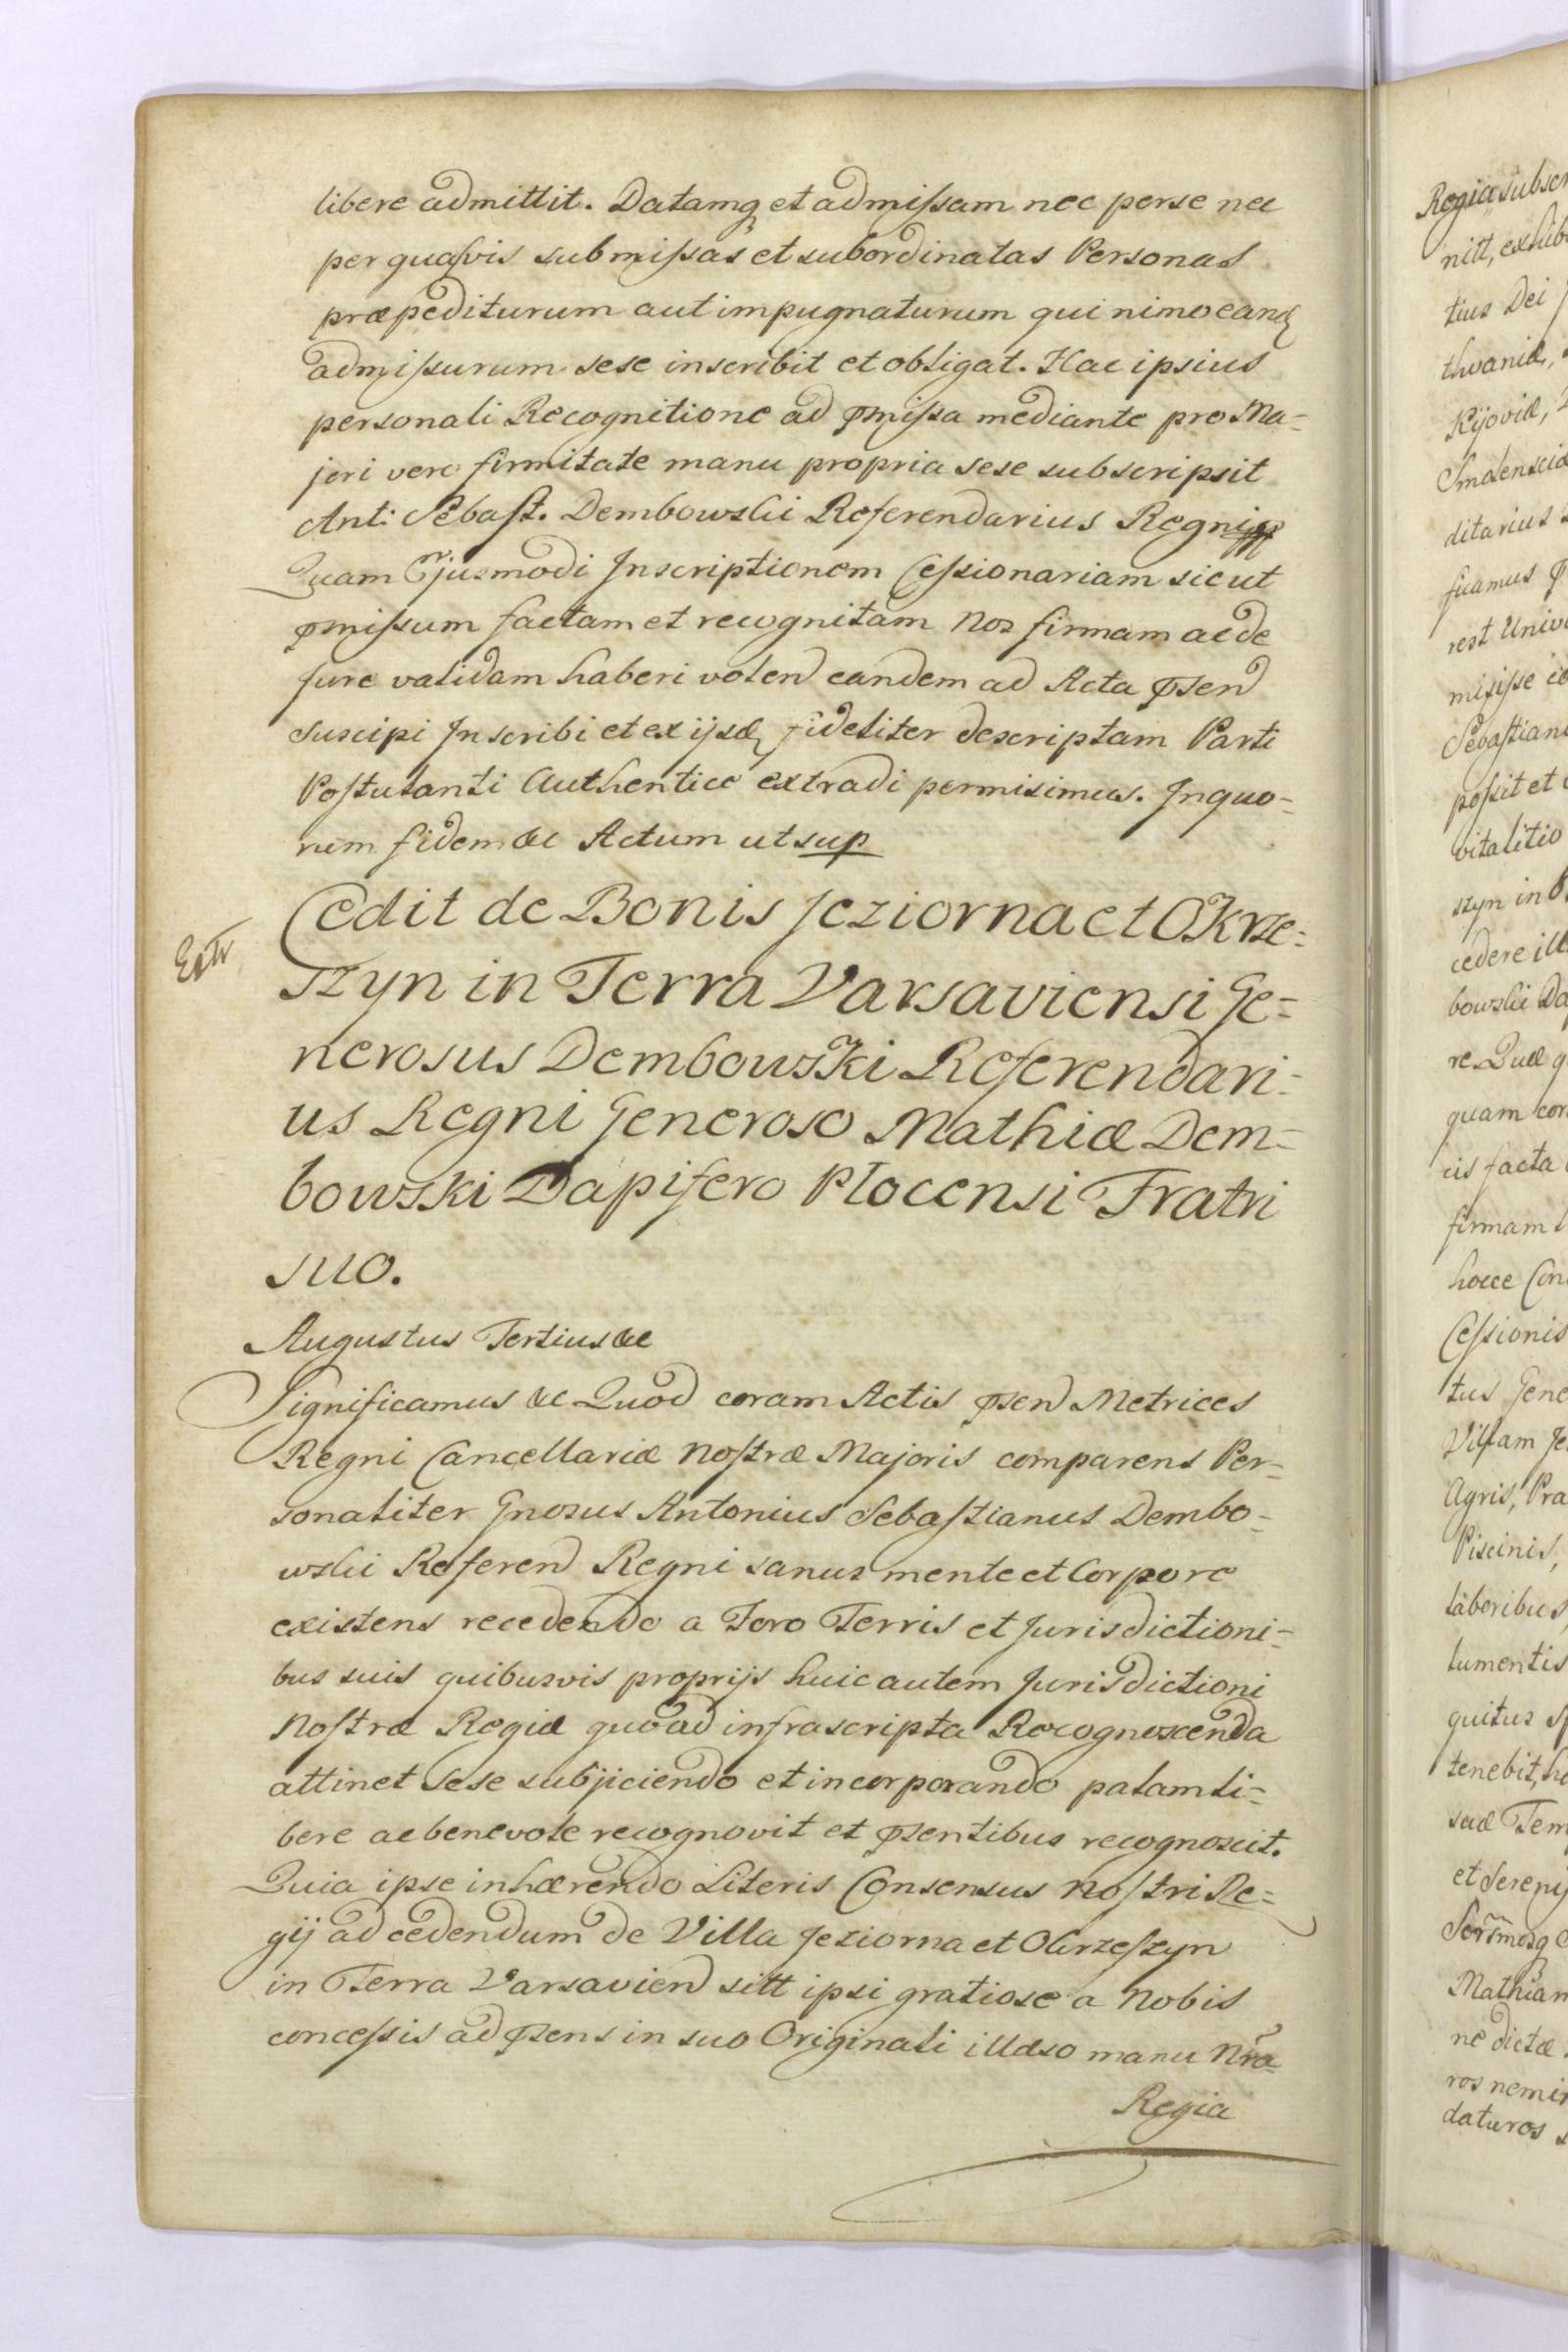 libere admittit. Datamq et admissam nec per se nec
per quasvis submissas et subordinatas Personas
præpediturum aut impugnaturum qui nimo eand
admissurum sese inscribit et obligat. Hac ipsius
personali Recognitione ad pmissa mediante pro Ma-
jori vero firmitate manu propria sese subscripsit
Ant: Sebast. Dembowski Referendarius Regni
Quam Ejusmodi Inscriptionem Cessionariam sic ut
pmissum factam et recognitam Nos firmam ac de
jure validam haberi volend eandem ad Acta psend
suscipi Inscribi et ex ijsd fideliter descriptam Parti
Postulanti Authentice extradi permisimus. In quo-
rum fidem &c Actum ut sup
Extr
Cedit de Bonis Jeziorna et Okrze-
szyn in Terra Varsaviensi Ge-
nerosus Dembowski Referendari-
us Regni Generoso Mathiæ Dem-
bowski Dapifero Plocensi Fratri
suo.
Augustus Tertius &c
Significamus &c Quod coram Actis psend Metrices
Regni Cancellariæ Nostræ Majoris comparens Per-
sonaliter Gnosus Antonius Sebastianus Dembo-
wski Referend Regni sanus mente et Corpore
existens recedendo a Foro Terris et Jurisdictioni-
bus suis quibusvis proprijs huic autem Jurisdictioni
Nostræ Regiæ quoad infrascripta Recognoscenda
attinet sese subjiciendo et incorporando palam li-
bere ac benevole recognovit et psentibus recognoscit.
Quia ipse inhærendo Literis Consensus Nostri Re-
gij ad cedendum de Villa Jeziorna et Okrzeszyn
in Terra Varsaviend sitt ipsi gratiose a Nobis
concessis ad psens in suo Originali illæso manu Nra
Regia
Regia subscr
nitt, exhib
tius Dei
thvaniæ,
Kijoviæ,
Smolensciæ
ditarius
ficamus
rest Univ
misisse
Sebastiano
possit et
vitalitio
szyn in
cedere ill
bowski Da
re. Quæ q
quam cor
cis facta
firmam
hocce Con
Cessionis
tus Gene
Villam Je
Agris, Pra
Piscinis,
laboribus
lumentis
quitus
tenebit, h
suæ Tem
et Sereni
Sermosq
Mathiam
ne dictæ
ros nemin
daturos